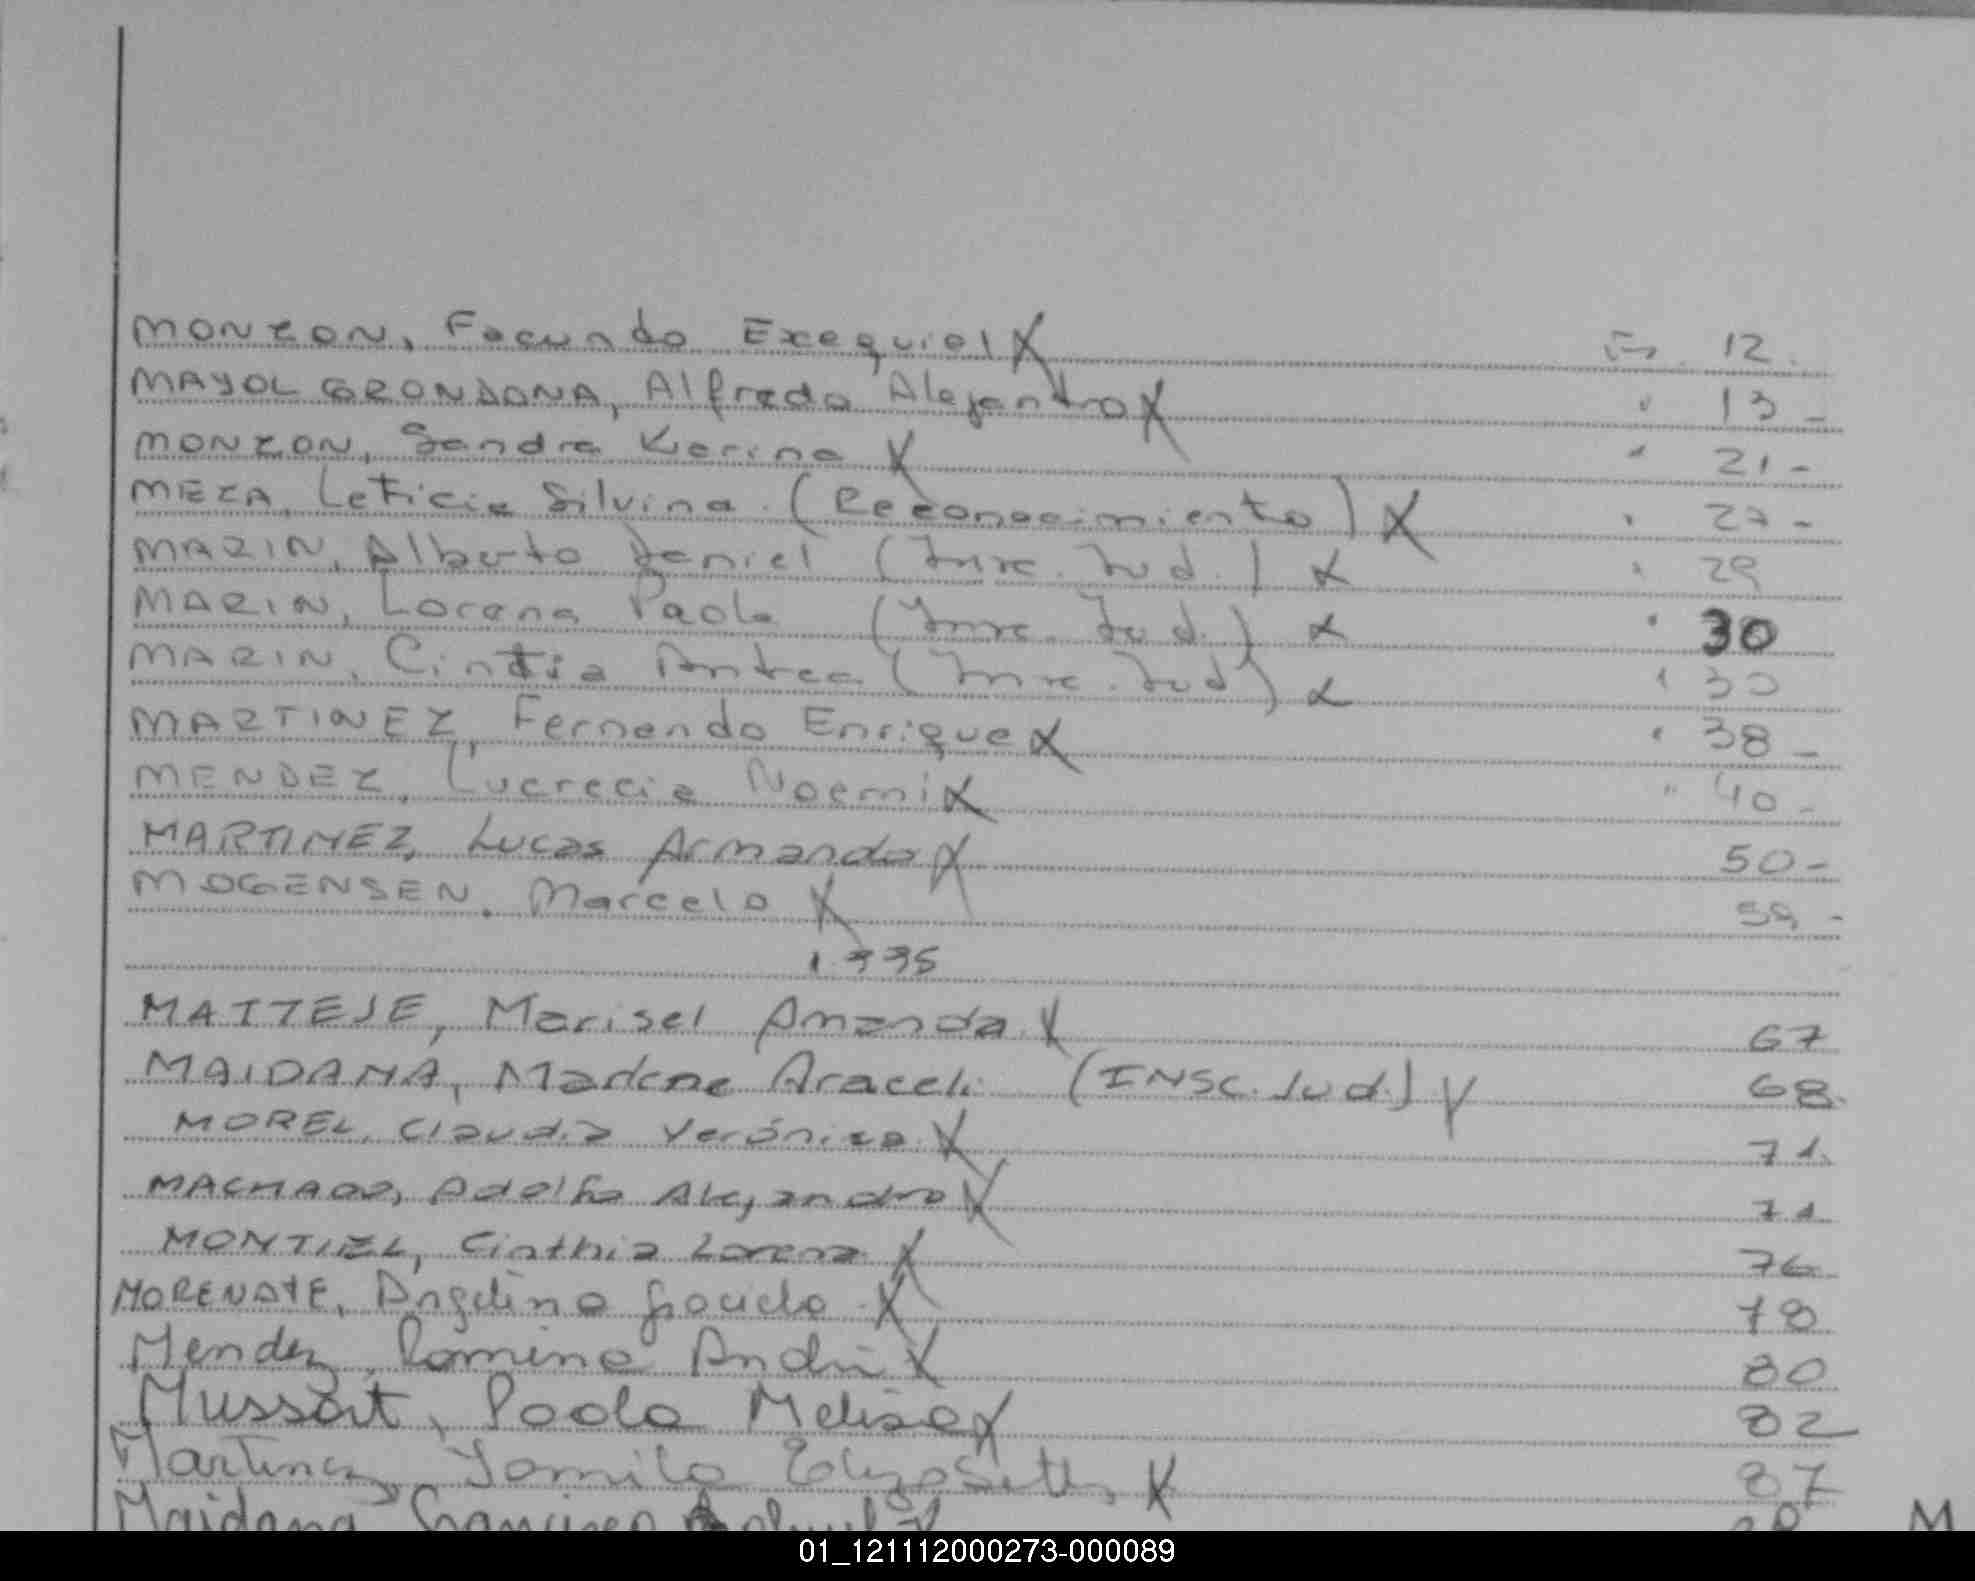 MONZON, Facundo Exequiel X Fº 12.
MAYOL GRONDONA, Alfredo Alejandro X " 13 -
MONZON, Sandra Karina X " 21 -
MEZA, Leticia Silvina (Reconocimiento) X " 27 -
MARIN, Alberto Daniel (Insc. Jud.) X " 29
MARIN, Lorena Paola (Insc. Jud.) X " 30
MARIN, Cintia Andrea (Insc. Jud) X " 30
MARTINEZ, Fernando Enrique X " 38 -
MENDEZ, Lucrecia Noemi X " 40 -
MARTINEZ, Lucas Armando X 50 -
MOGENSEN, Marcelo X 59 -
1.995
MATTEJE, Marisel Amanda X 67
MAIDANA, Marlene Araceli (INSC. Jud.) X 68
MOREL, Claudia Verónica X 71
MACHADO, Adolfo Alejandro X 71
MONTIEL, Cinthia Lorena X 76
MORENATE, Angelina X 78
Mendez, Romina X 80
Mussart, Paola Melisa X 82
Martinez Yamila Elizabeth X 87
Maidana Francisco
M
01_121112000273-000089